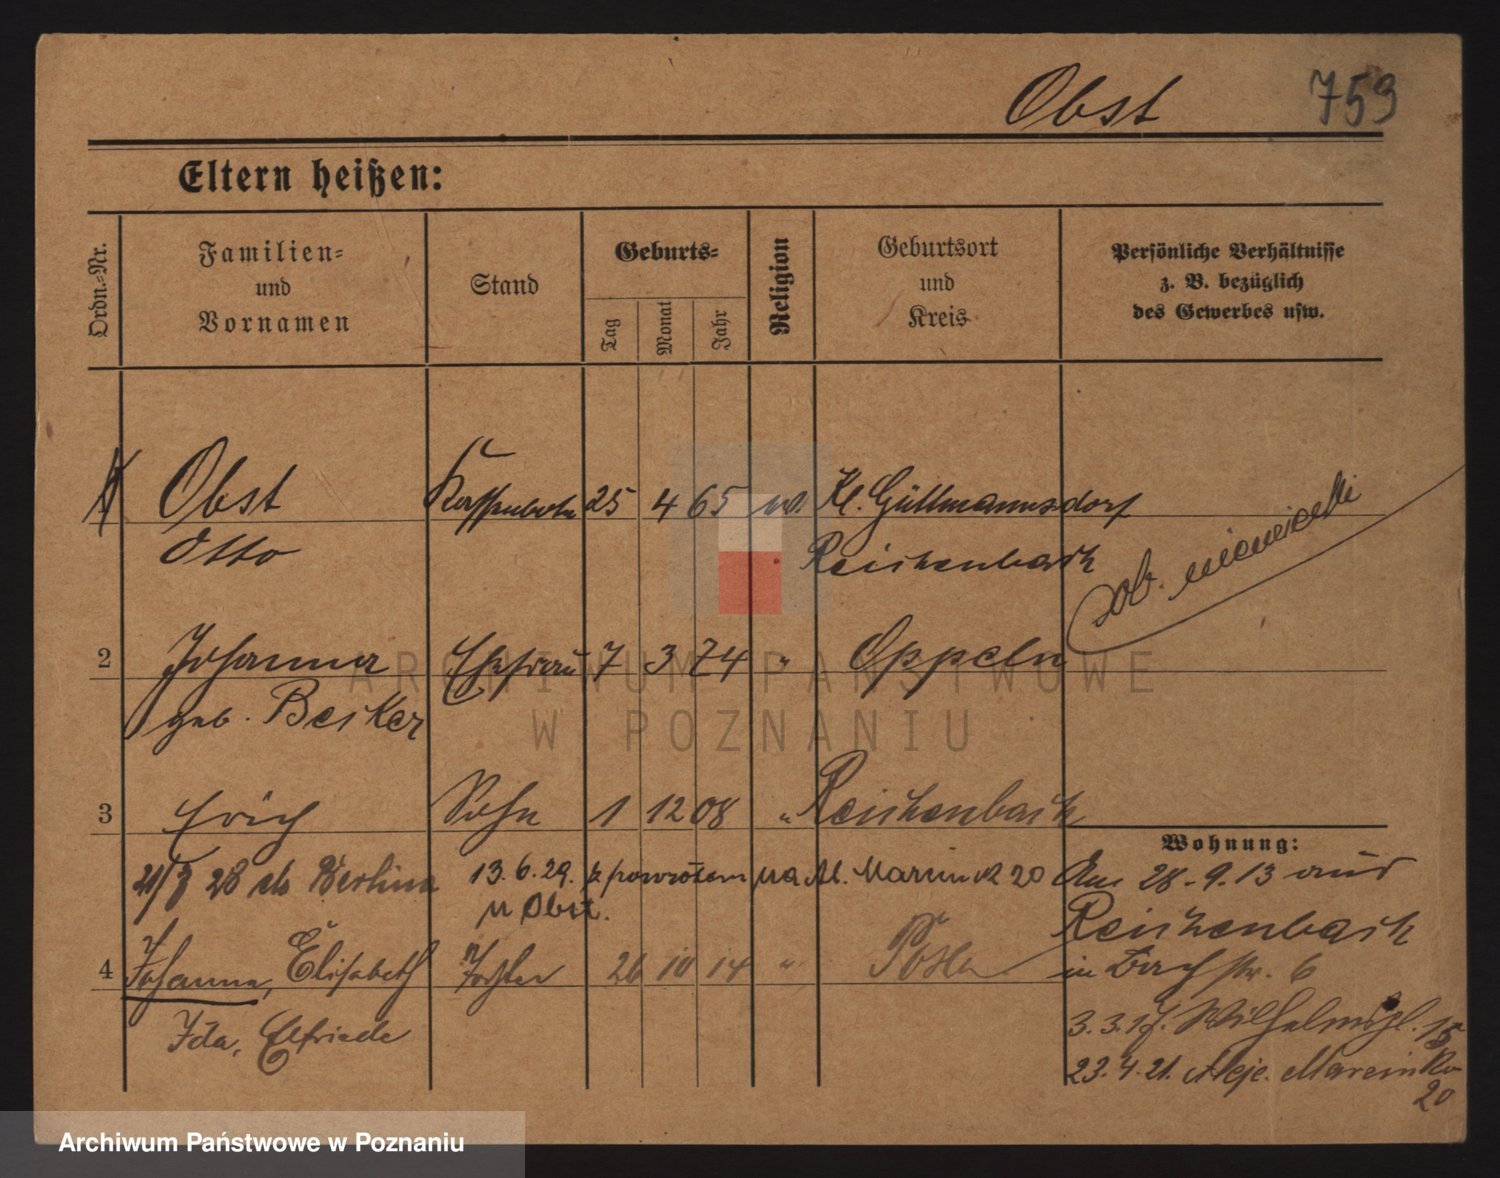 Obst 759
Eltern heißen:
Ordn.-Nr.
Familien-
und
Vornamen
Stand
Geburts-
Tag
Monat
Jahr
Religion
Geburtsort
und
Kreis
Persönliche Verhältnisse
z. B. bezüglich
des Gewerbes usw.
Obst Kassenbote 25 4 65 Kl. Güttmannsdorf
Otto Reichenbach
ob. niemiecki
2 Johanna Ehefrau 7 3 74 " Oppeln
geb. Becker
3 Erich Sohn 1 12 08 " Reichenbach
Wohnung:
28 do Berlina 13.6.29. z powrotem na Al. Marcink 20
u Obst.
Am 28.9.13 aus
Reichenbach
4 Johanna, Elisabeth Tochter 26 10 14 " Posen
Ida, Elfriede
in Bachstr. 6
3.3.17. Wilhelmspl. 15
23.4.21. Aleje Marcinko
20
ARCHIWUM PAŃSTWOWE
W POZNANIU
Archiwum Państwowe w Poznaniu